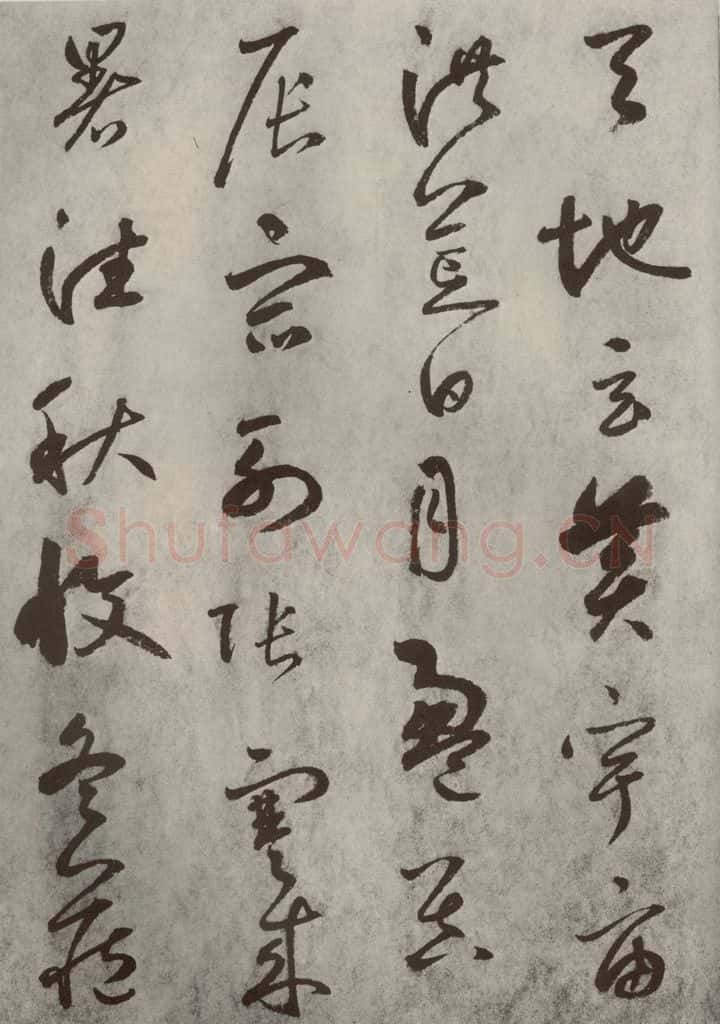 天地玄黃宇宙
洪荒日月盈昃
辰宿列張寒來
暑往秋收冬藏
Shufawang.CN